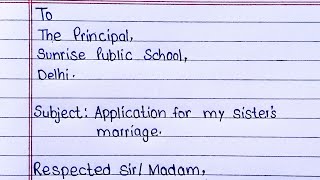 To
The Principal,
Sunrise Public School,
Delhi.
Subject: Application for my sister's
marriage.
Respected Sir/Madam,